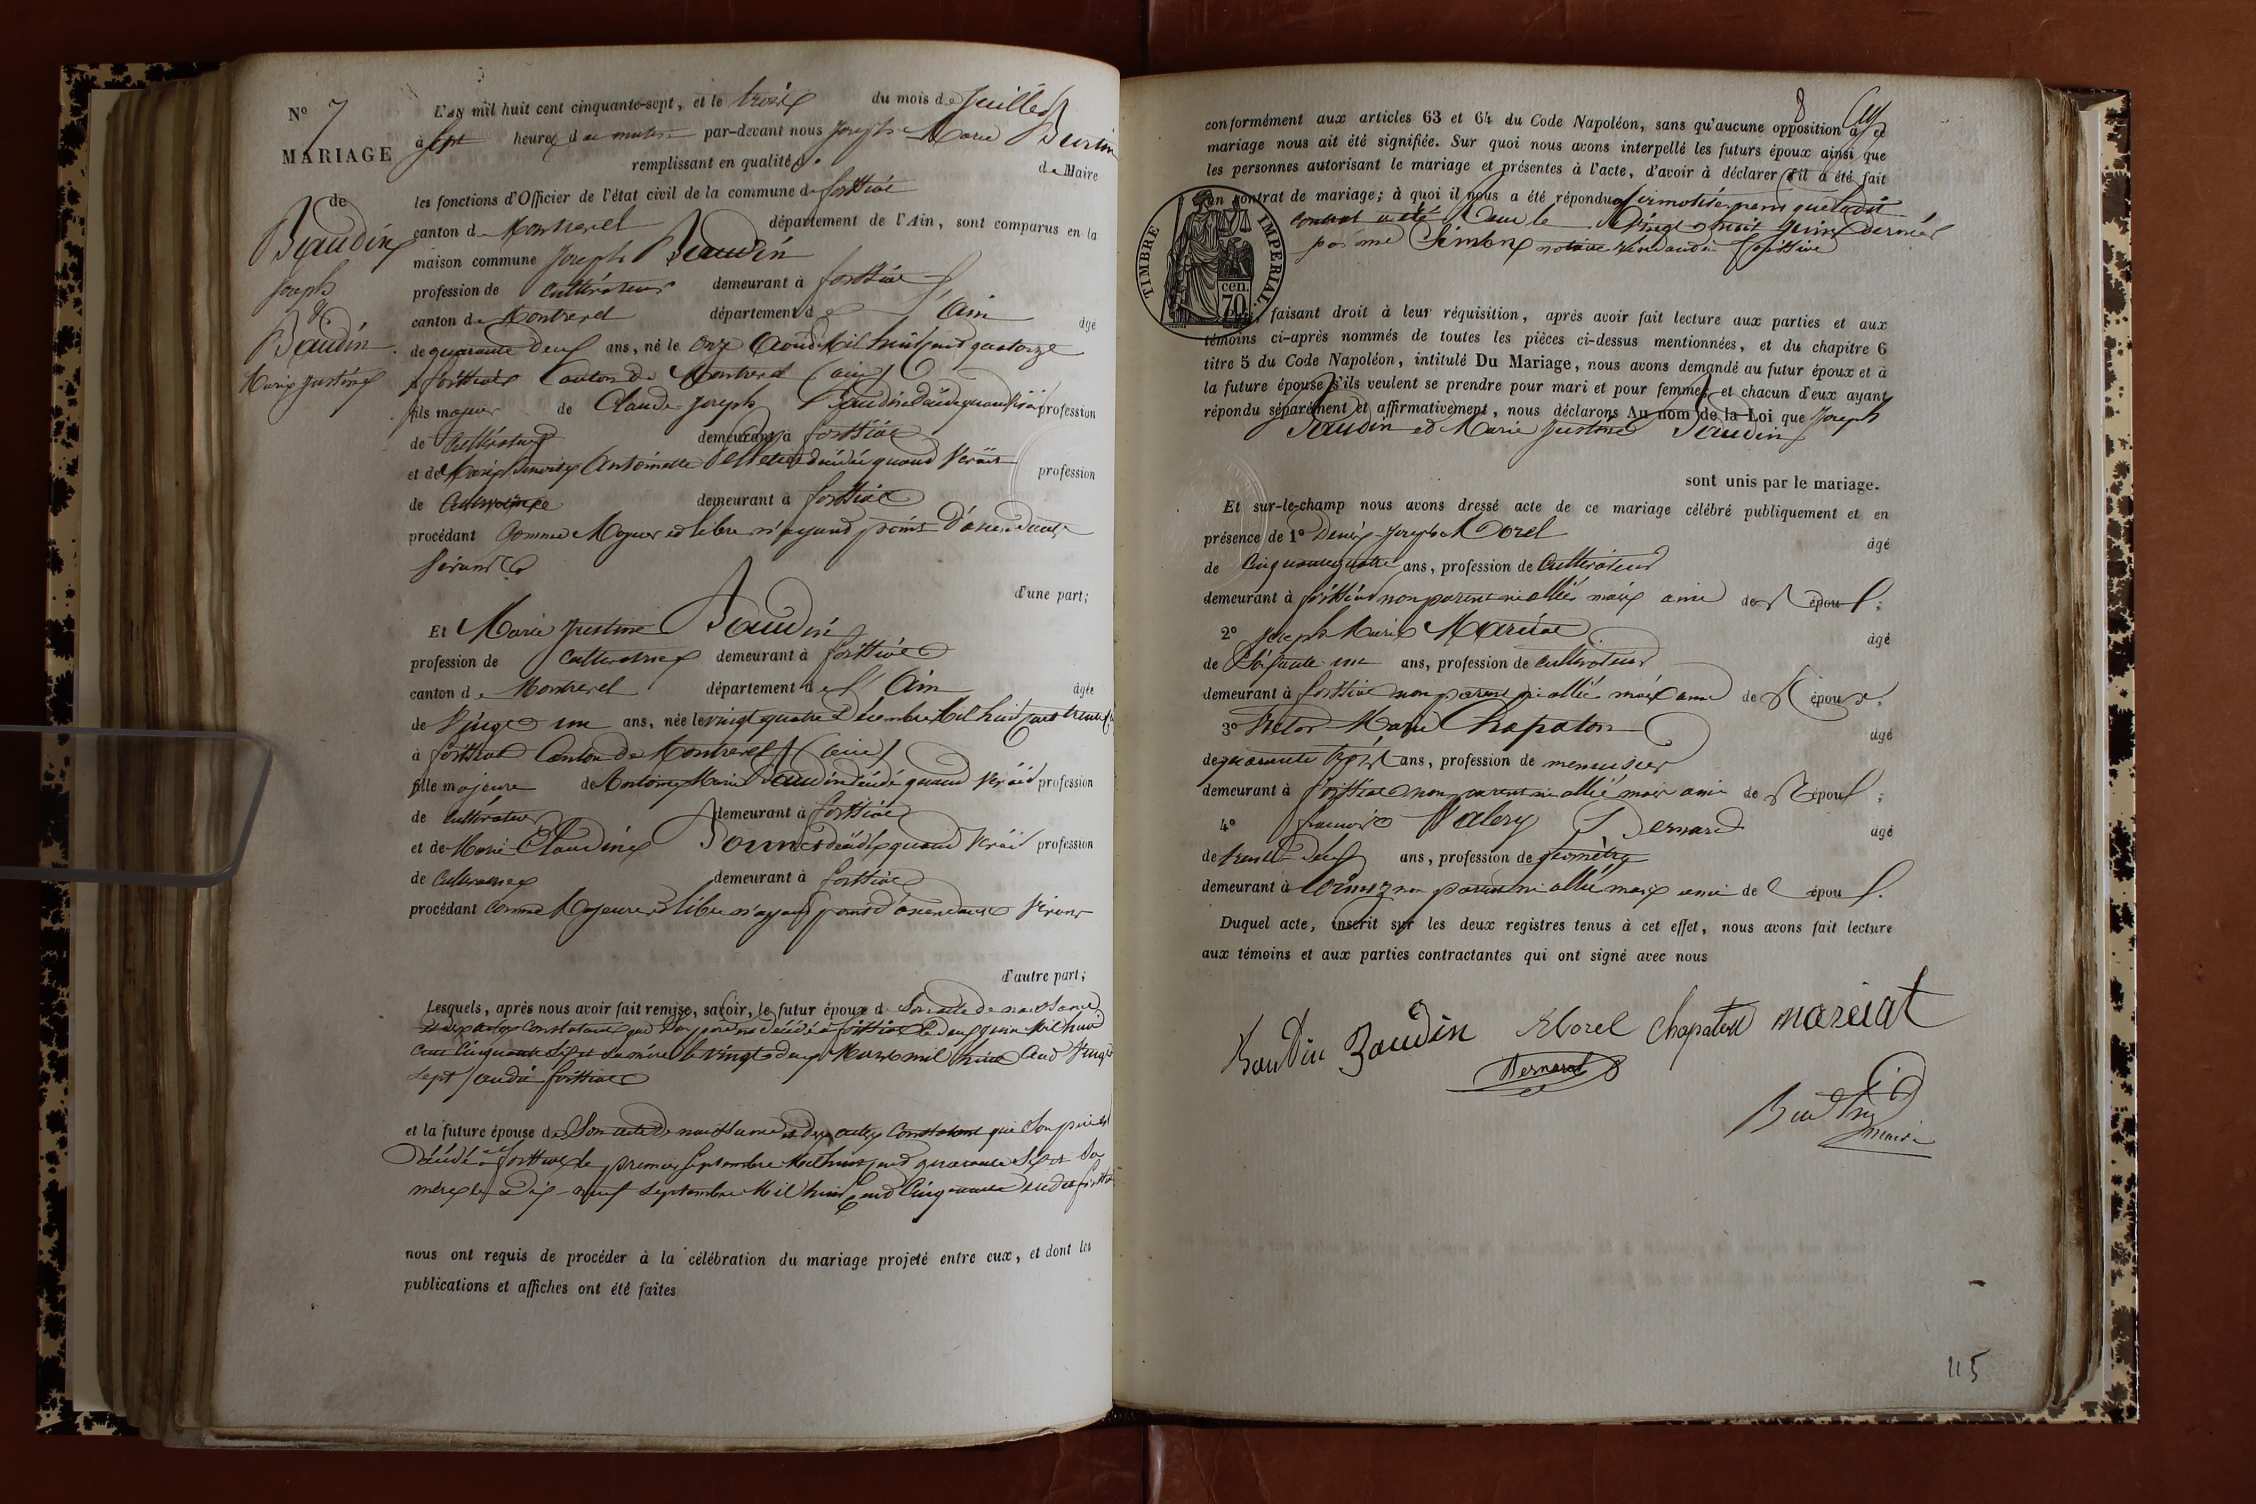 N° 7
MARIAGE
de
Baudin
Joseph
&
Baudin
Marie Justine
L'AN mil huit cent cinquante-sept, et le trois du mois de Juillet
à sept heures du matin par-devant nous Joseph Marie
remplissant en qualité de Maire
les fonctions d'Officier de l'état civil de la commune de foissiat
canton de Montrevel département de l'Ain, sont comparus en la
maison commune Joseph Baudin
profession de cultivateur demeurant à foissiat
canton de Montrevel département de l'Ain âgé
de quarante deux ans, né le onze Aout Mil huit cent quatorze
à foissiat Canton de Montrevel (ain)
fils majeur de Claude Joseph Baudin décédé quand vivait profession
de cultivateur demeurant à foissiat
et de Marie Antoinette décédée quand vivait profession
de cultivatrice demeurant à foissiat
procédant comme Majeur et libre n'ayant point d'ascendants
vivants
d'une part;
Et Marie Justine Baudin
profession de cultivatrice demeurant à foissiat
canton de Montrevel département de l'Ain âgée
de vingt un ans, née le vingt quatre Décembre Mil huit cent trente
à foissiat Canton de Montrevel (ain)
fille majeure de Antoine Marie Baudin décédé quand vivait profession
de cultivateur demeurant à foissiat
et de Marie Claudine décédée quand vivait profession
de cultivatrice demeurant à foissiat
procédant comme Majeure et libre n'ayant point d'ascendants vivants
d'autre part;
Lesquels, après nous avoir fait remise, savoir, le futur époux de Son acte de naissance
et des actes constatant que son père est décédé à foissiat le deux juin Mil huit
cent cinquante sept sa mère le vingt deux Mars mil huit cent vingt
sept audit foissiat
et la future épouse de Son acte de naissance et des actes constatant que Son père est
Décédé à foissiat le premier septembre Mil huit cent quarante sept sa
mère le dix neuf septembre Mil huit cent cinquante audit foissiat
nous ont requis de procéder à la célébration du mariage projeté entre eux, et dont les
publications et affiches ont été faites
8
conformément aux articles 63 et 64 du Code Napoléon, sans qu'aucune opposition à ce
mariage nous ait été signifiée. Sur quoi nous avons interpellé les futurs époux ainsi que
les personnes autorisant le mariage et présentes à l'acte, d'avoir à déclarer s'il a été fait
un contrat de mariage; à quoi il nous a été répondu affirmativement que ledit
contrat a été reçu le vingt huit juin dernier
par me notaire résidant à foissiat
TIMBRE IMPERIAL
70 cen.
faisant droit à leur réquisition, après avoir fait lecture aux parties et aux
témoins ci-après nommés de toutes les pièces ci-dessus mentionnées, et du chapitre 6
titre 5 du Code Napoléon, intitulé Du Mariage, nous avons demandé au futur époux et à
la future épouse s'ils veulent se prendre pour mari et pour femme; et chacun d'eux ayant
répondu séparément et affirmativement, nous déclarons Au nom de la Loi que Joseph
Baudin et Marie Justine Baudin
sont unis par le mariage.
Et sur-le-champ nous avons dressé acte de ce mariage célébré publiquement et en
présence de 1° Denis Joseph Morel âgé
de cinquante quatre ans, profession de cultivateur
demeurant à foissiat non parent ni allié mais ami des époux;
2° Joseph Marie Maréchal âgé
de ans, profession de cultivateur
demeurant à foissiat non parent ni allié mais ami des époux;
3° Victor Marie Chapaton âgé
de quarante trois ans, profession de menuisier
demeurant à foissiat non parent ni allié mais ami des époux;
4° françois Valery Bernard âgé
de trente deux ans, profession de géomètre
demeurant à non parent ni allié mais ami des époux.
Duquel acte, inscrit sur les deux registres tenus à cet effet, nous avons fait lecture
aux témoins et aux parties contractantes qui ont signé avec nous
Baudin Baudin Morel Chapaton
Bernard
maire
115